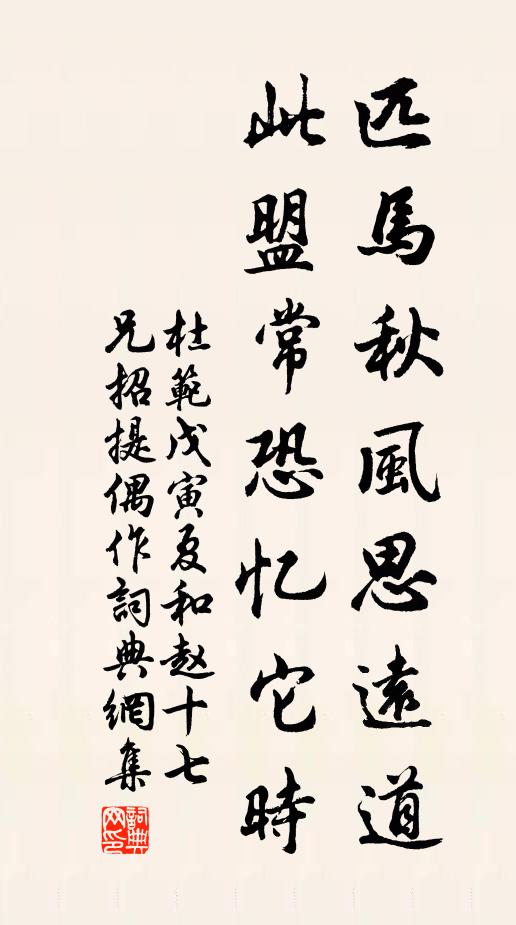 匹馬秋風思遠道
此盟常恐忆它時
杜範戊寅夏和赵十七
兄招提偶作詞典網集
詞典
网印